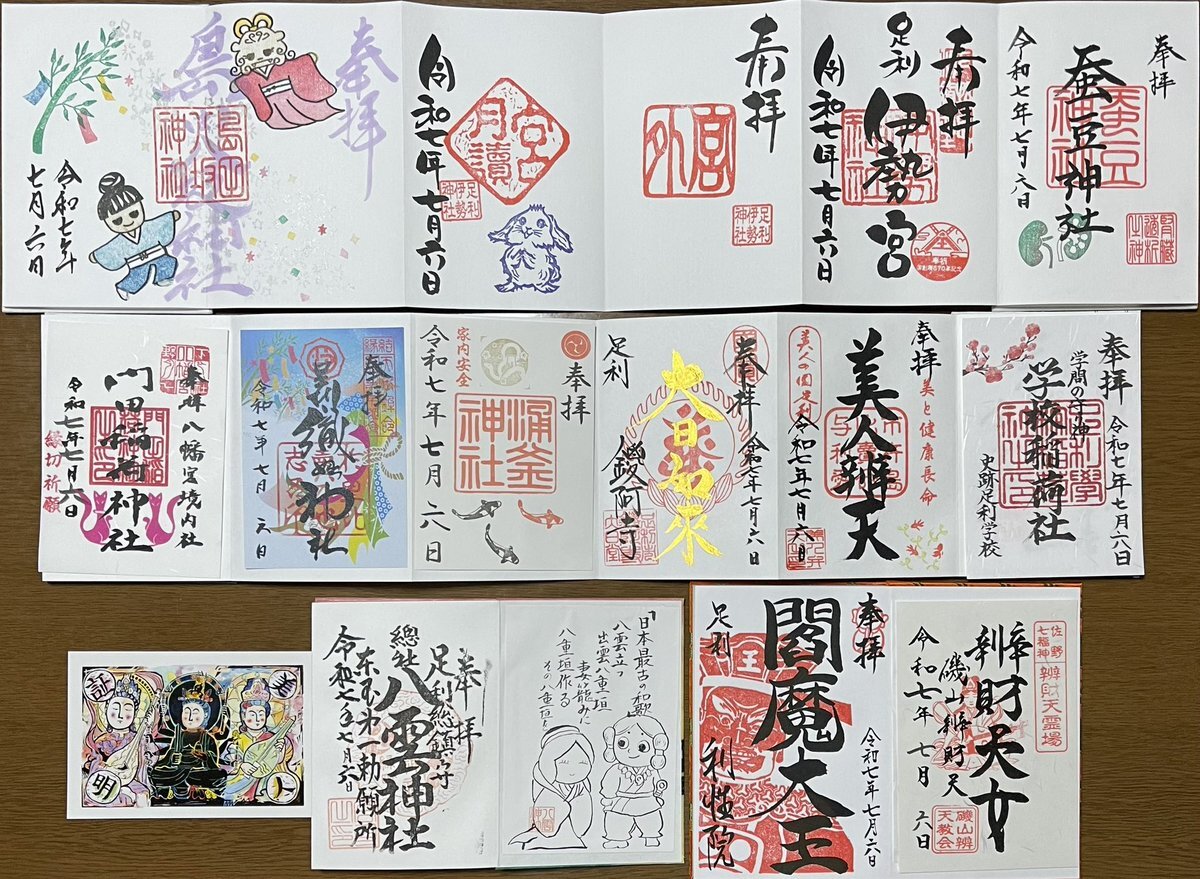 奉拝
蚕豆神社
令和七年七月六日
蚕豆
神社
奉拝
足利
伊勢宮
令和七年七月六日
奉拝
外宮
足利
伊勢
神社
月讀宮
足利
伊勢
神社
令和七年七月六日
奉拝
島田
八坂
神社
令和七年
七月六日
奉拝
学問の守り神
学校稲荷社
令和七年七月六日
史跡足利学校
奉拝
美と健康長命
美人辨天
美人の国足利
令和七年七月六日
奉拝
大日如来
令和七年七月六日
足利
鑁阿寺
奉拝
家内安全
涌釜
神社
令和七年七月六日
奉拝
織姫神社
令和七年七月六日
奉拝
八幡宮境内社
門田稲荷神社
令和七年七月六日
縁切祈願
佐野
七福神
辨財天霊場
辨財天女
磯山辨財天
令和七年七月六日
磯山辨
天教会
奉拝
閻魔大王
王
令和七年七月六日
足利
利性院
「日本最古の和歌」
八雲立つ
出雲八重垣
妻籠みに
八重垣作る
その八重垣を
奉拝
足利総鎮守
總社
八雲神社
東国第一勅願所
令和七年七月六日
美人
証明